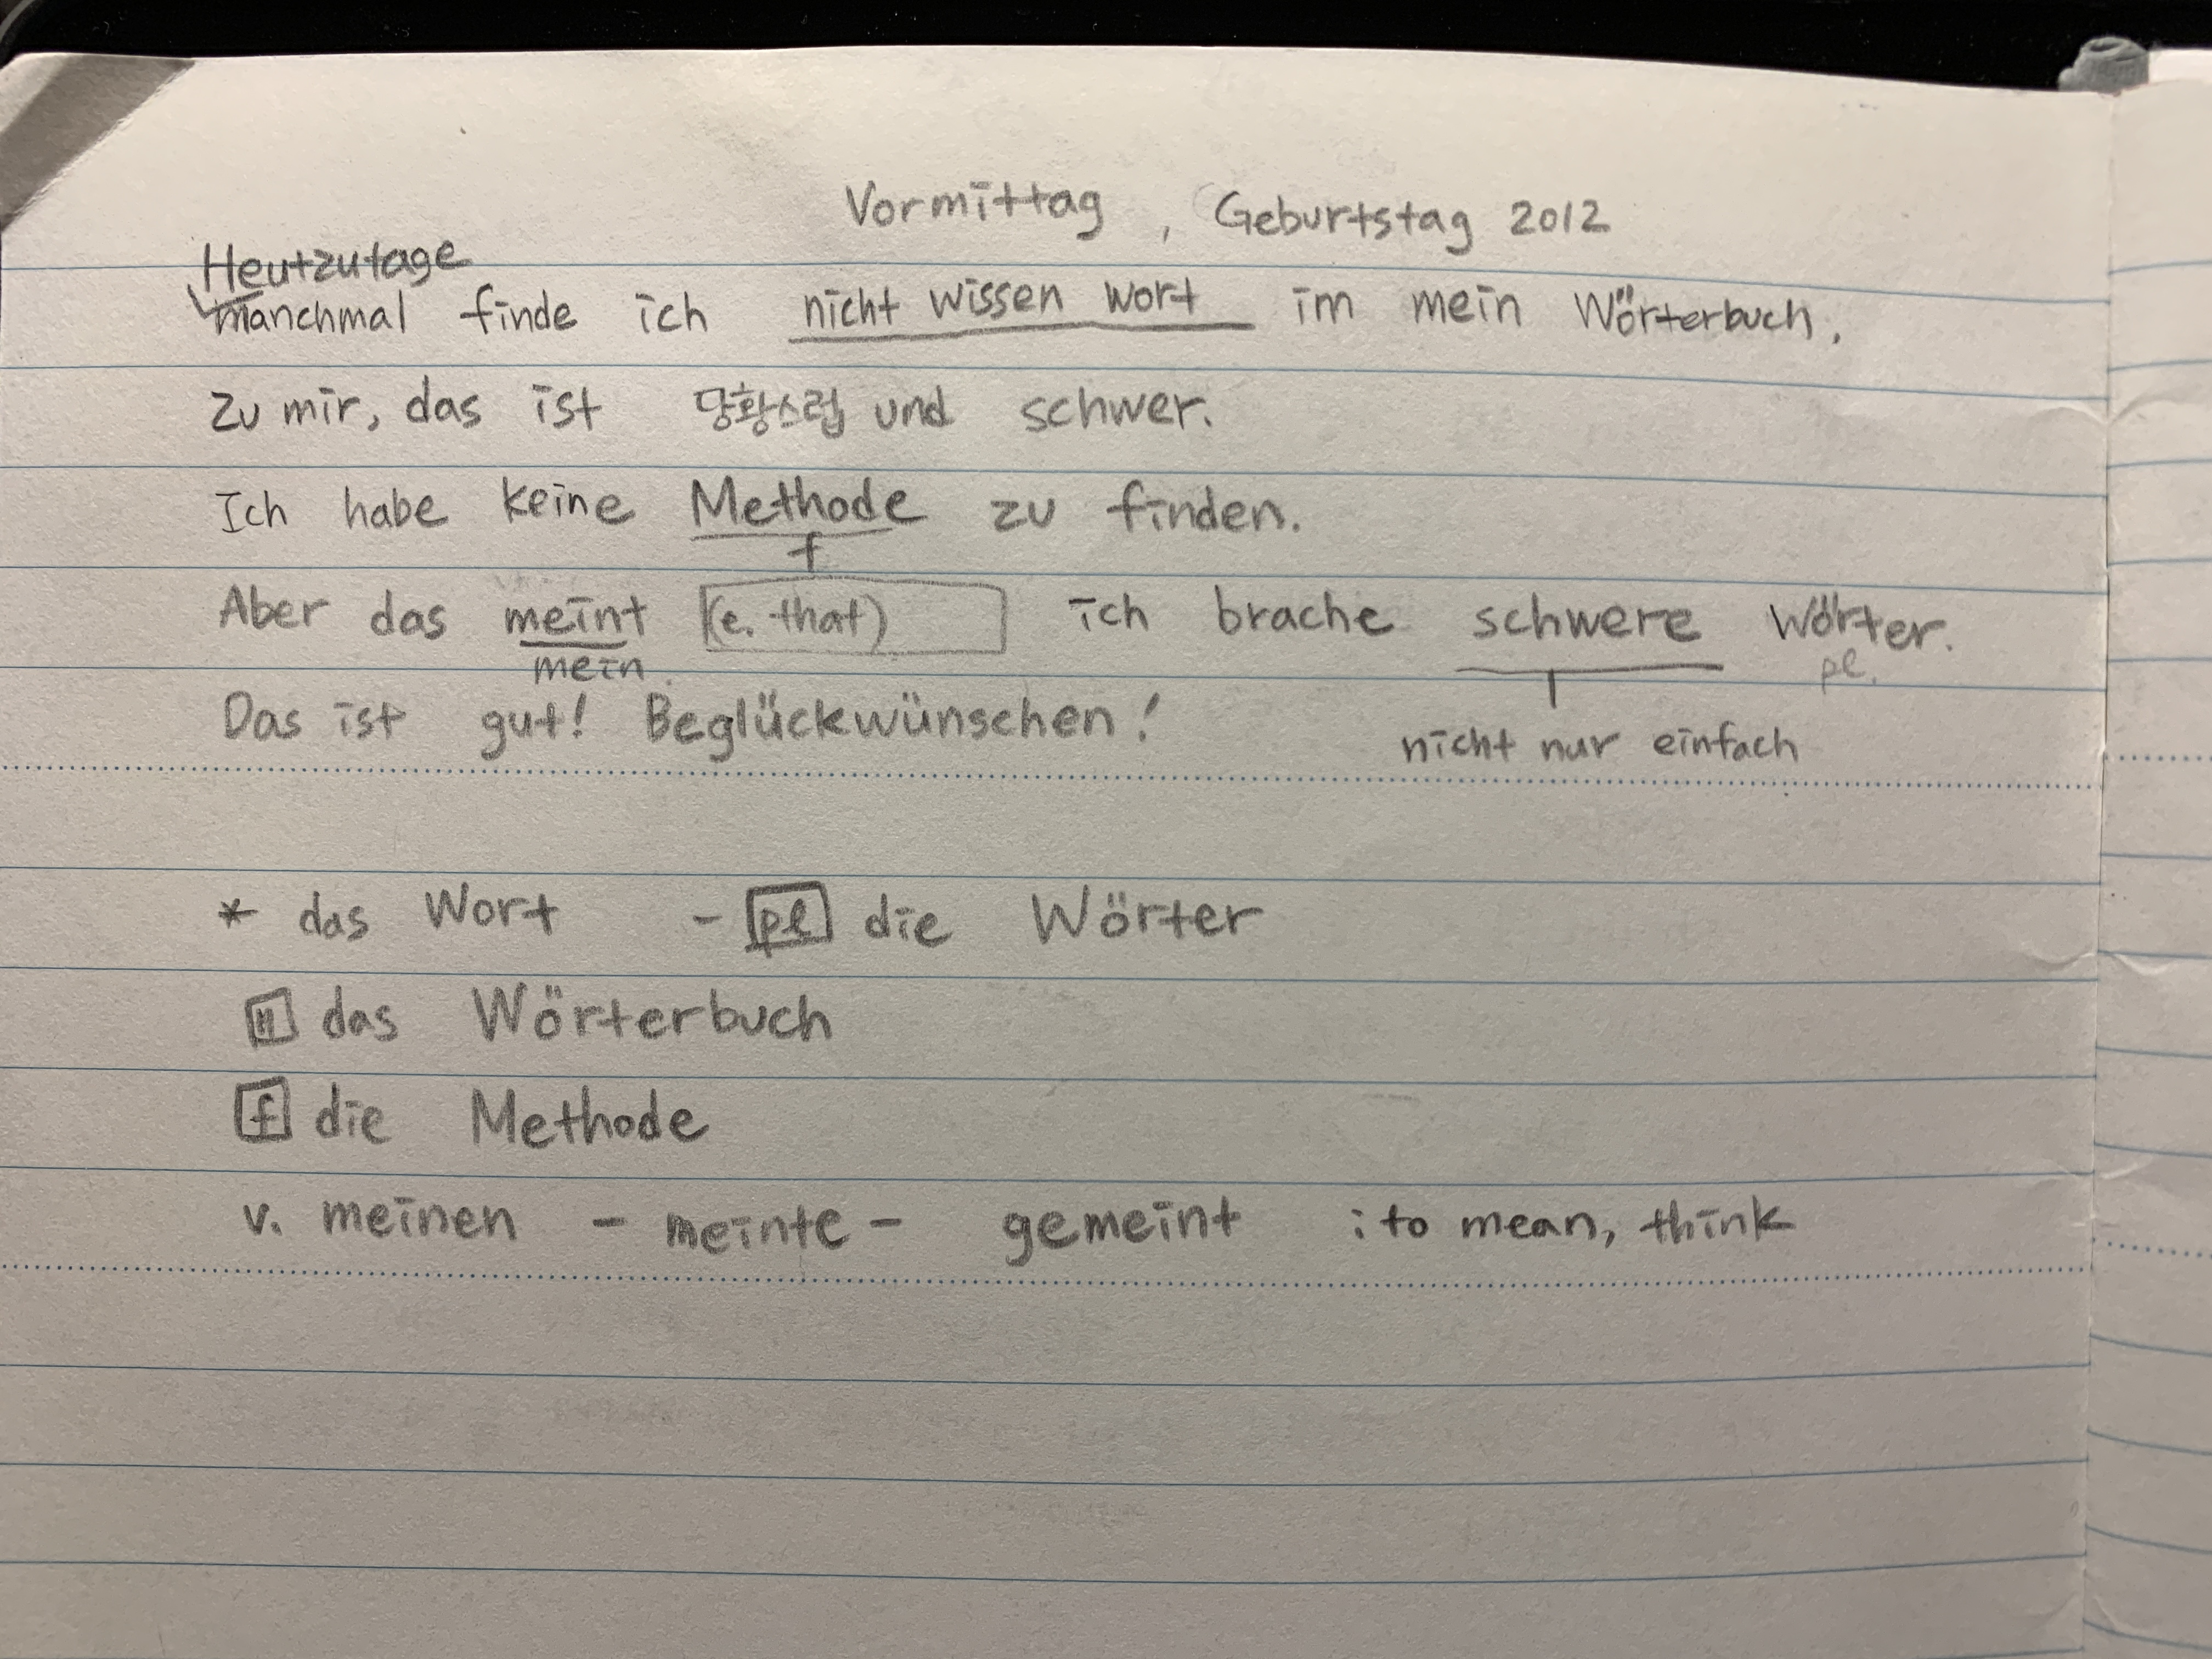 Vormittag , Geburtstag 2012
Heutzutage
Manchmal finde ich nicht wissen wort im mein Wörterbuch.
Zu mir, das ist 당황스럽 und schwer.
Ich habe keine Methode zu finden.
f
Aber das meint (e. that) ich brache schwere Wörter.
mein pl.
Das ist gut! Beglückwünschen!
nicht nur einfach
* das Wort - pl die Wörter
n das Wörterbuch
f die Methode
v. meinen - meinte - gemeint : to mean, think